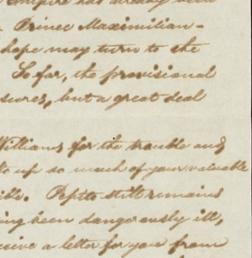 Empire has already been
Prince Maximilian-
hope may turn to the
So far, the provisional
sures, but a great deal
Williams for the trouble and
to up so much of your valuable
ible. Pepita still remains
ing been dangerously ill,
ceive a letter for you from